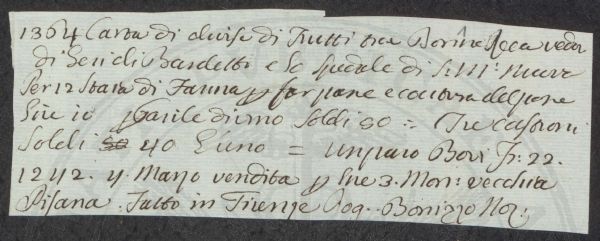 1364 Carta di divise di Frutti tra Borina Reca vedo:
di Geri di Bardetti e lo spedale di S. M:ª Nuova
Per 12 Staia di Farina p far pane e cocitura del pane
Lire 10 p Barile di vino Soldi 50 :: Tre Casconi
Soldi 40 l'uno = un paro Bovi fr: 22.
1242. 4. Marzo vendita p Lire 3. Mon: vecchia
Pisana. Fatto in Firenze Rog. Bonizzo Not: